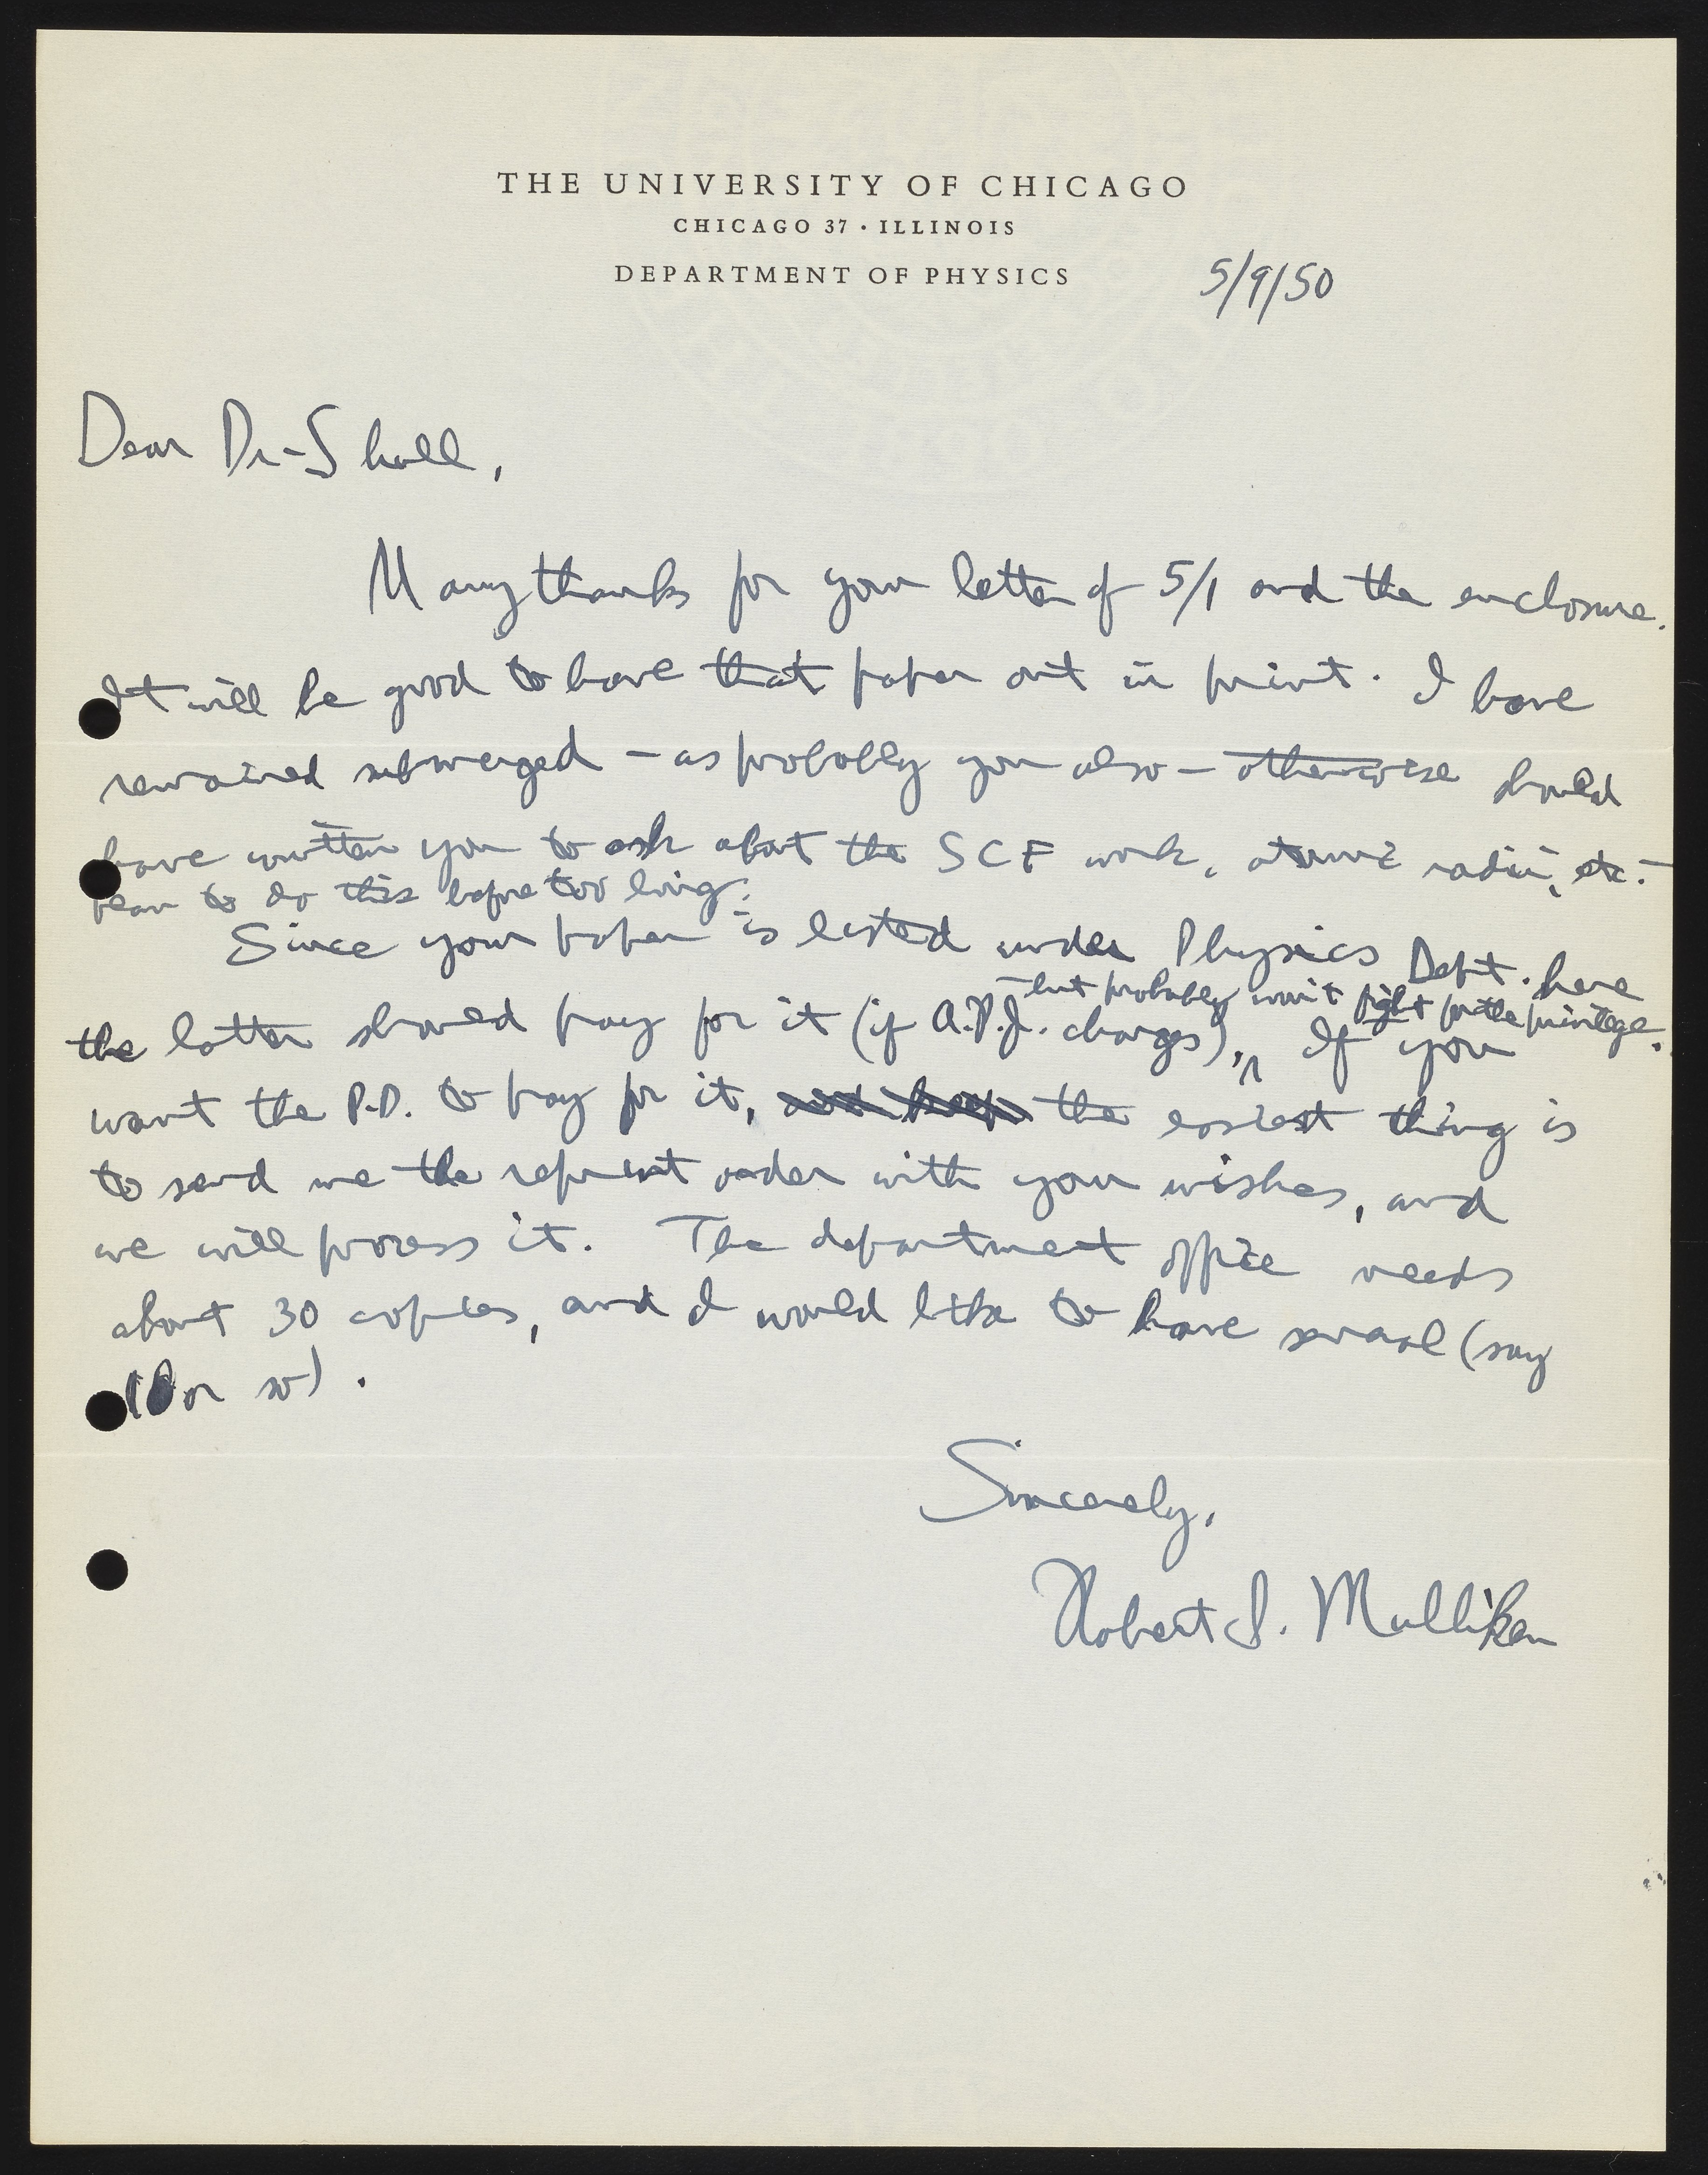 THE UNIVERSITY OF CHICAGO
CHICAGO 37 · ILLINOIS
DEPARTMENT OF PHYSICS
5/9/50
Dear Dr. Shull,
Many thanks for your letter of 5/1 and the enclosure.
It will be good to have that paper out in print. I have
remained submerged – as probably you also – otherwise should
have written you to ask about the SCF work, atomic radii, etc. –
plan to do this before too long.
Since your paper is listed under Physics Dept. here
– but probably won't fight for the privilege.
the latter should pay for it (if A.P.J. charges), If you
want the P.D. to pay for it, the easiest thing is
to send me the reprint order with your wishes, and
we will process it. The department office needs
about 30 copies, and I would like to have several (say
10 or so).
Sincerely,
Robert S. Mulliken